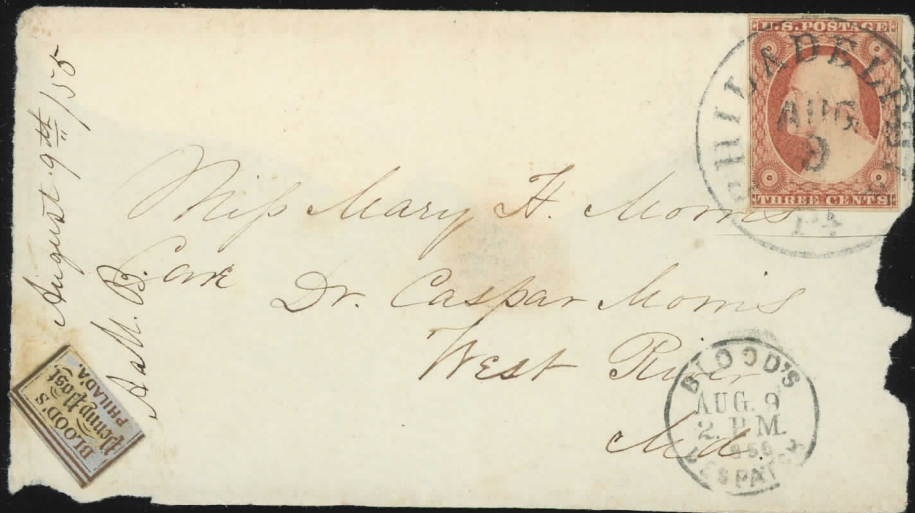 August 9th/55
U.S. POSTAGE
THREE CENTS
PHILADELPHIA
AUG
9
Pa
Miss Mary H. Morris
Care Dr. Caspar Morris
West River
Md.
BLOOD'S
Penny Post
PHILAD'A.
BLOOD'S
AUG. 9
2 P.M.
DESPATCH